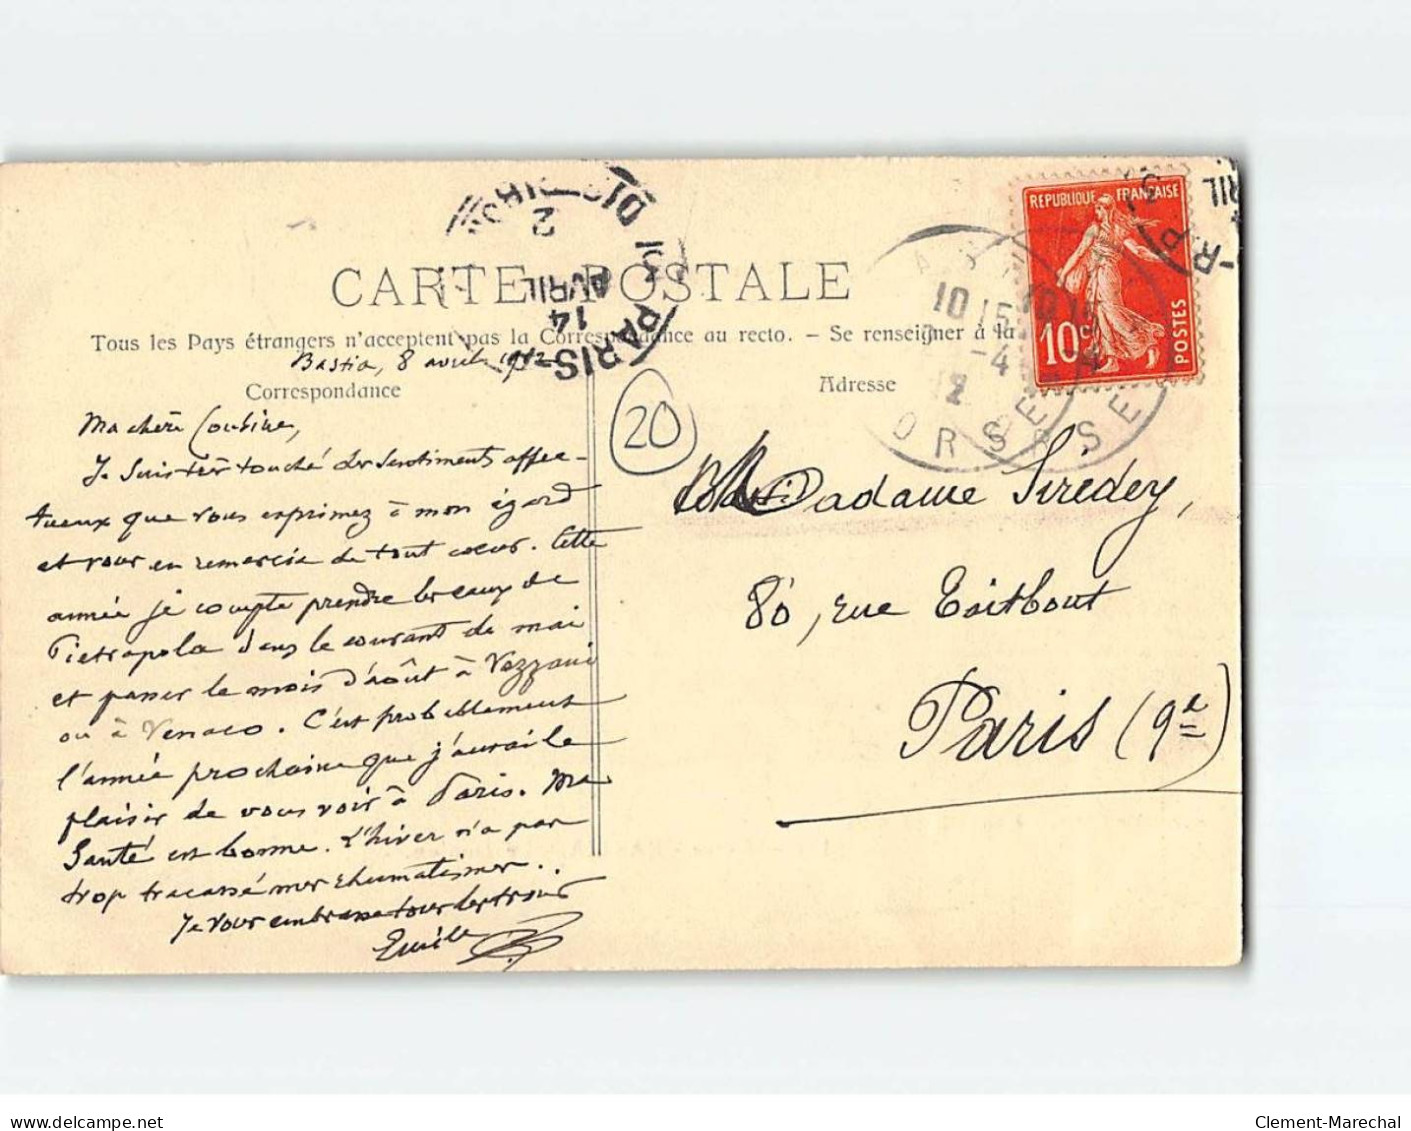 CARTE POSTALE
Tous les Pays étrangers n'acceptent pas la Correspondance au recto. - Se renseigner à la
Bastia, 8 avril 1912
Correspondance
Ma chère Cousine,
Je suis très touché des sentiments affec-
tueux que vous exprimez à mon égard
et vous en remercie de tout coeur. Cette
année je compte prendre les eaux de
Pietrapola dans le courant de mai
et passer le mois d'août à Vezzani
ou à Venaco. C'est probablement
l'année prochaine que j'aurai le
plaisir de vous voir à Paris. Ma
Santé est bonne. L'hiver n'a pas
trop tracassé mes rhumatismes.
Je vous embrasse tous les trois
Emile
20
Adresse
Madame Siredey,
80, rue Taitbout
Paris (9e)
REPUBLIQUE FRANÇAISE
10c
POSTES
10 15
-4
12
CORSE
PARIS
14
AVRIL
DISTRIBUTION
Clement-Marechal
delcampe.net